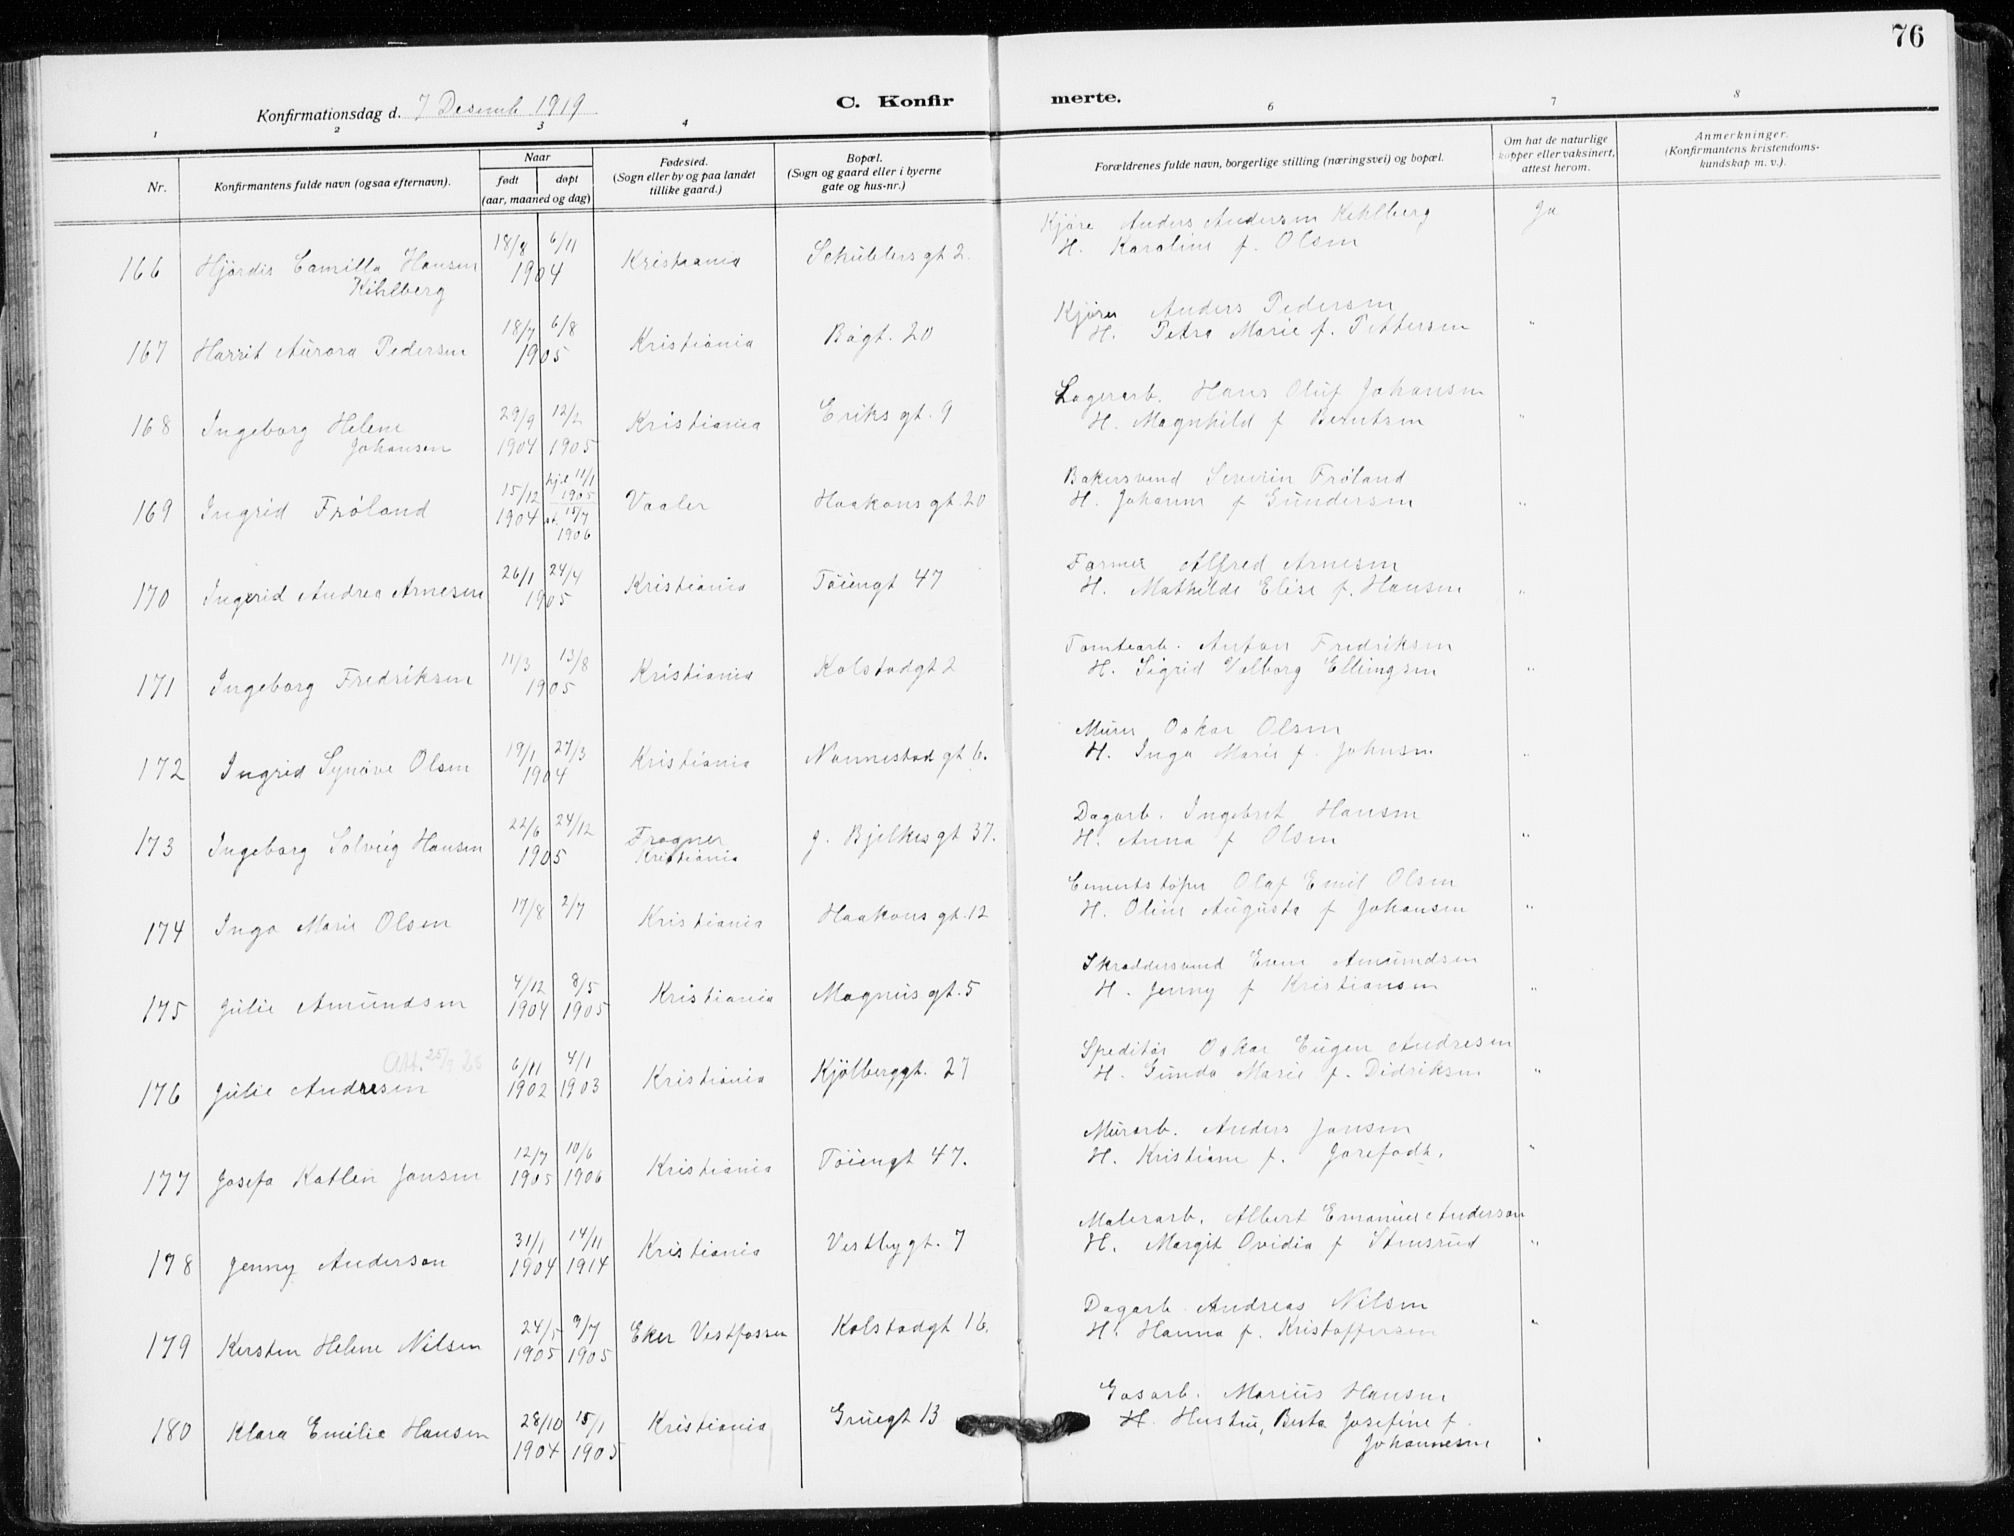 76
Konfirmationsdag d. 7 Desemb 1919
C. Konfir merte.
1 2 3 4 6 7 8
Nr.
Konfirmantens fulde navn (ogsaa efternavn).
Naar
født døpt
(aar, maaned og dag)
Fødested.
(Sogn eller by og paa landet
tillike gaard.)
Bopæl.
(Sogn og gaard eller i byerne
gate og hus-nr.)
Forældrenes fulde navn, borgerlige stilling (næringsvei) og bopæl.
Om hat de naturlige
kopper eller vaksinert,
attest herom.
Anmerkninger.
(Konfirmantens kristendoms-
kundskap m. v.).
Kjøre Anders Andersen Kihlberg Ja
H. Karoline f. Olsen
18/8 6/11
166 Hjørdis Camilla Hansen 1904 Kristiania Schüblers gt 2.
Kihlberg
Kjører Anders Pedersen
H. Petra Marie f. Pettersen "
18/7 6/8
167 Harrit Aurora Pedersen 1905 Kristiania Bógt. 20
Lagerarb. Hans Oluf Johansen
H. Magnhild f Berntsen "
29/9 12/2
168 Ingeborg Helene Kristiania Eriks gt. 9
Johansen 1904 1905
Bakersvend Severin Frøland
H. Johanne f Gundersen "
15/12 hj.d 11/1
1905
169 Ingrid Frøland 1904 15/7 Vaaler Haakons gt. 20
1906
Farmer Alfred Arnesen
H. Mathilde Elise f. Hansen "
26/1 24/4
170 Ingerid Andrea Arnesen 1905 Kristiania Tøiengt 47
Tomtearb. Anton Fredriksen
H. Sigrid Valborg Ellingsen "
11/3 13/8
171 Ingeborg Fredriksen 1905 Kristiania Kolstadgt 2
Murer Oskar Olsen
H. Inga Marie f. Johnsen "
19/1 27/3
172 Ingrid Synøve Olsen 1904 Kristiania Nannestad gt 6.
Dagarb. Ingebret Hansen
H. Anna f Olsen "
22/6 24/12 Frogner
173 Ingeborg Solveig Hansen 1905 Kristiania J. Bjelkes gt 37.
Cementstøper Olaf Emil Olsen
H. Oline Augusta f Johansen "
17/8 2/7
174 Inga Marie Olsen Kristiania Haakons gt. 12
Skræddersvend Even Amundsen
H. Jenny f Kristiansen "
4/12 8/5
175 Julie Amundsen 1904 1905 Kristiania Magnus gt. 5
Speditør Oskar Eugen Andresen
H. Gunda Marie f. Didriksen "
Att. 25/9 28
6/11 4/1
176 Julie Andresen 1902 1903 Kristiania Kjölberggt. 27
Murarb. Anders Jansen
H. Kristiane f. Jarefodt. "
12/7 10/6
177 Josefa Katlen Jansen 1905 1906 Kristiania Tøiengt 47.
Malerarb. Albert Emanuel Anderson
H. Margit Ovidia f Stensrud "
31/1 14/11
178 Jenny Anderson 1904 1914 Kristiania Vestbygt. 7
Dagarb. Andreas Nilsen
H. Hanna f. Kristoffersen "
24/5 9/7
179 Kersten Helene Nilsen 1905 1905 Eker Vestfossen Kolstadgt 16.
Gasarb. Marius Hansen
H. Hustru, Berta Josefine f.
Johannesen "
28/10 15/1
180 Klara Emilie Hansen 1904 1905 Kristiania Gruegt 13